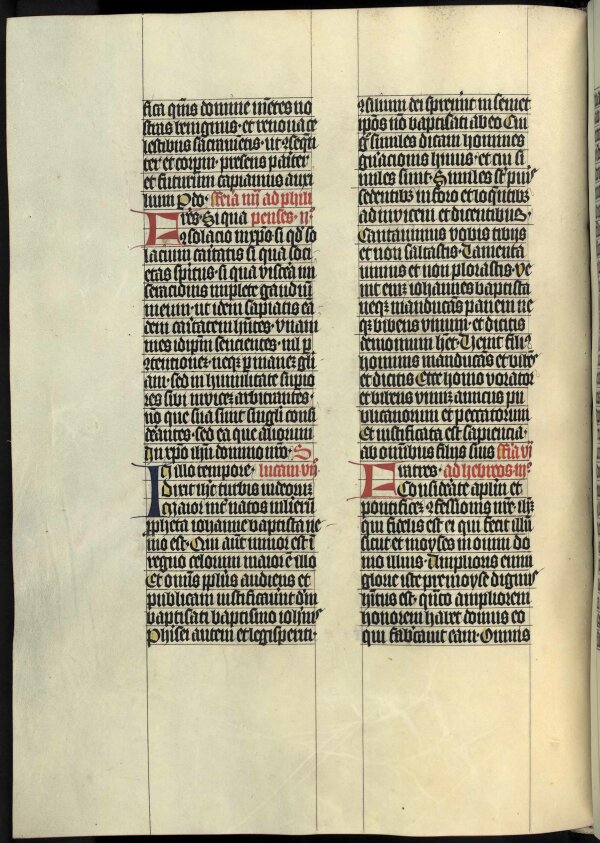 fica qm̃s domine mẽtes no
stras benignus · et renoua ce
lestibus sacramentis · ut ꝯseq̃
ter et corpm̃ presens pariter
et futurum capiamus auxi
lium P co · fẽia iiij ad phili
Fres · Si qua penses · ij ·
ꝯsolacio in xp̃o · si q̃d so
lacium caritatis · si qua soci
etas spiritus · si qua viscẽa mi
seracionis · implete gaudiũ
meum · ut idem sapiatis eã
dem caritatem hñtes · vnani
mes idip̃m sencientes · nil p̱
ꝯtencionez · neqz p̱ inanez gl̃i
am · sed in humilitate supio
res sibi inuicez arbitrantes ·
nõ que sua sunt singli consi
derantes · sed ea que aliorum
In xp̃o ihũ domino nr̃o · S
In illo tempore · lucam vij
Dixit ihc̃ turbis iudeorz
Maior int̃ natos mulierũ
ꝓpheta iohanne baptista ne
mo est · Qui aũt minor est ĩ
regno celorum maior ẽ illo
Et omĩs ppl̃us audiens et
publicani iustificauũt dm̃
baptisati baptismo ioh̃nis
Pharisei autem et legisperiti ·
ꝯsilium dei spreuũt in semet
ip̃os nõ baptisati ab eo Cui
g̃ similes dicam homines
gñacionis huius · et cui si
miles sunt · Similes st̃ pu̲is
sedentibz in foro et loqñtibz
ad inuicem et dicentibus ·
Cantauimus vobis tibijs
et non saltastis · Lamenta
uimus et non plorastis · Ve
nit enĩz iohannes baptista
neqz manducãs panem ne
qz bibens vinum · et dicitis
demonium h̃et · Venit fili9
hominis manducãs et bibẽs
et dicitis Ecce homo vorator
et bibens vinũz amicus pu
blicanorum et peccatorum
Et iustificata est sapiencia ·
ab omĩbus filijs suis fẽia vj
Fratres · ad hebreos iij ·
Considẽate apl̃m et
pontificez ꝯfessionis nr̃e ihz̃
qui fidelis est ei qui fecit illũ
sicut et moyses in omni do
mo illius · Amplioris enim
glorie iste pre moyse dignus
hĩtus est · q̃nto ampliorem
honorem habet domus eo
qui fab̾cauit eam · Omnis